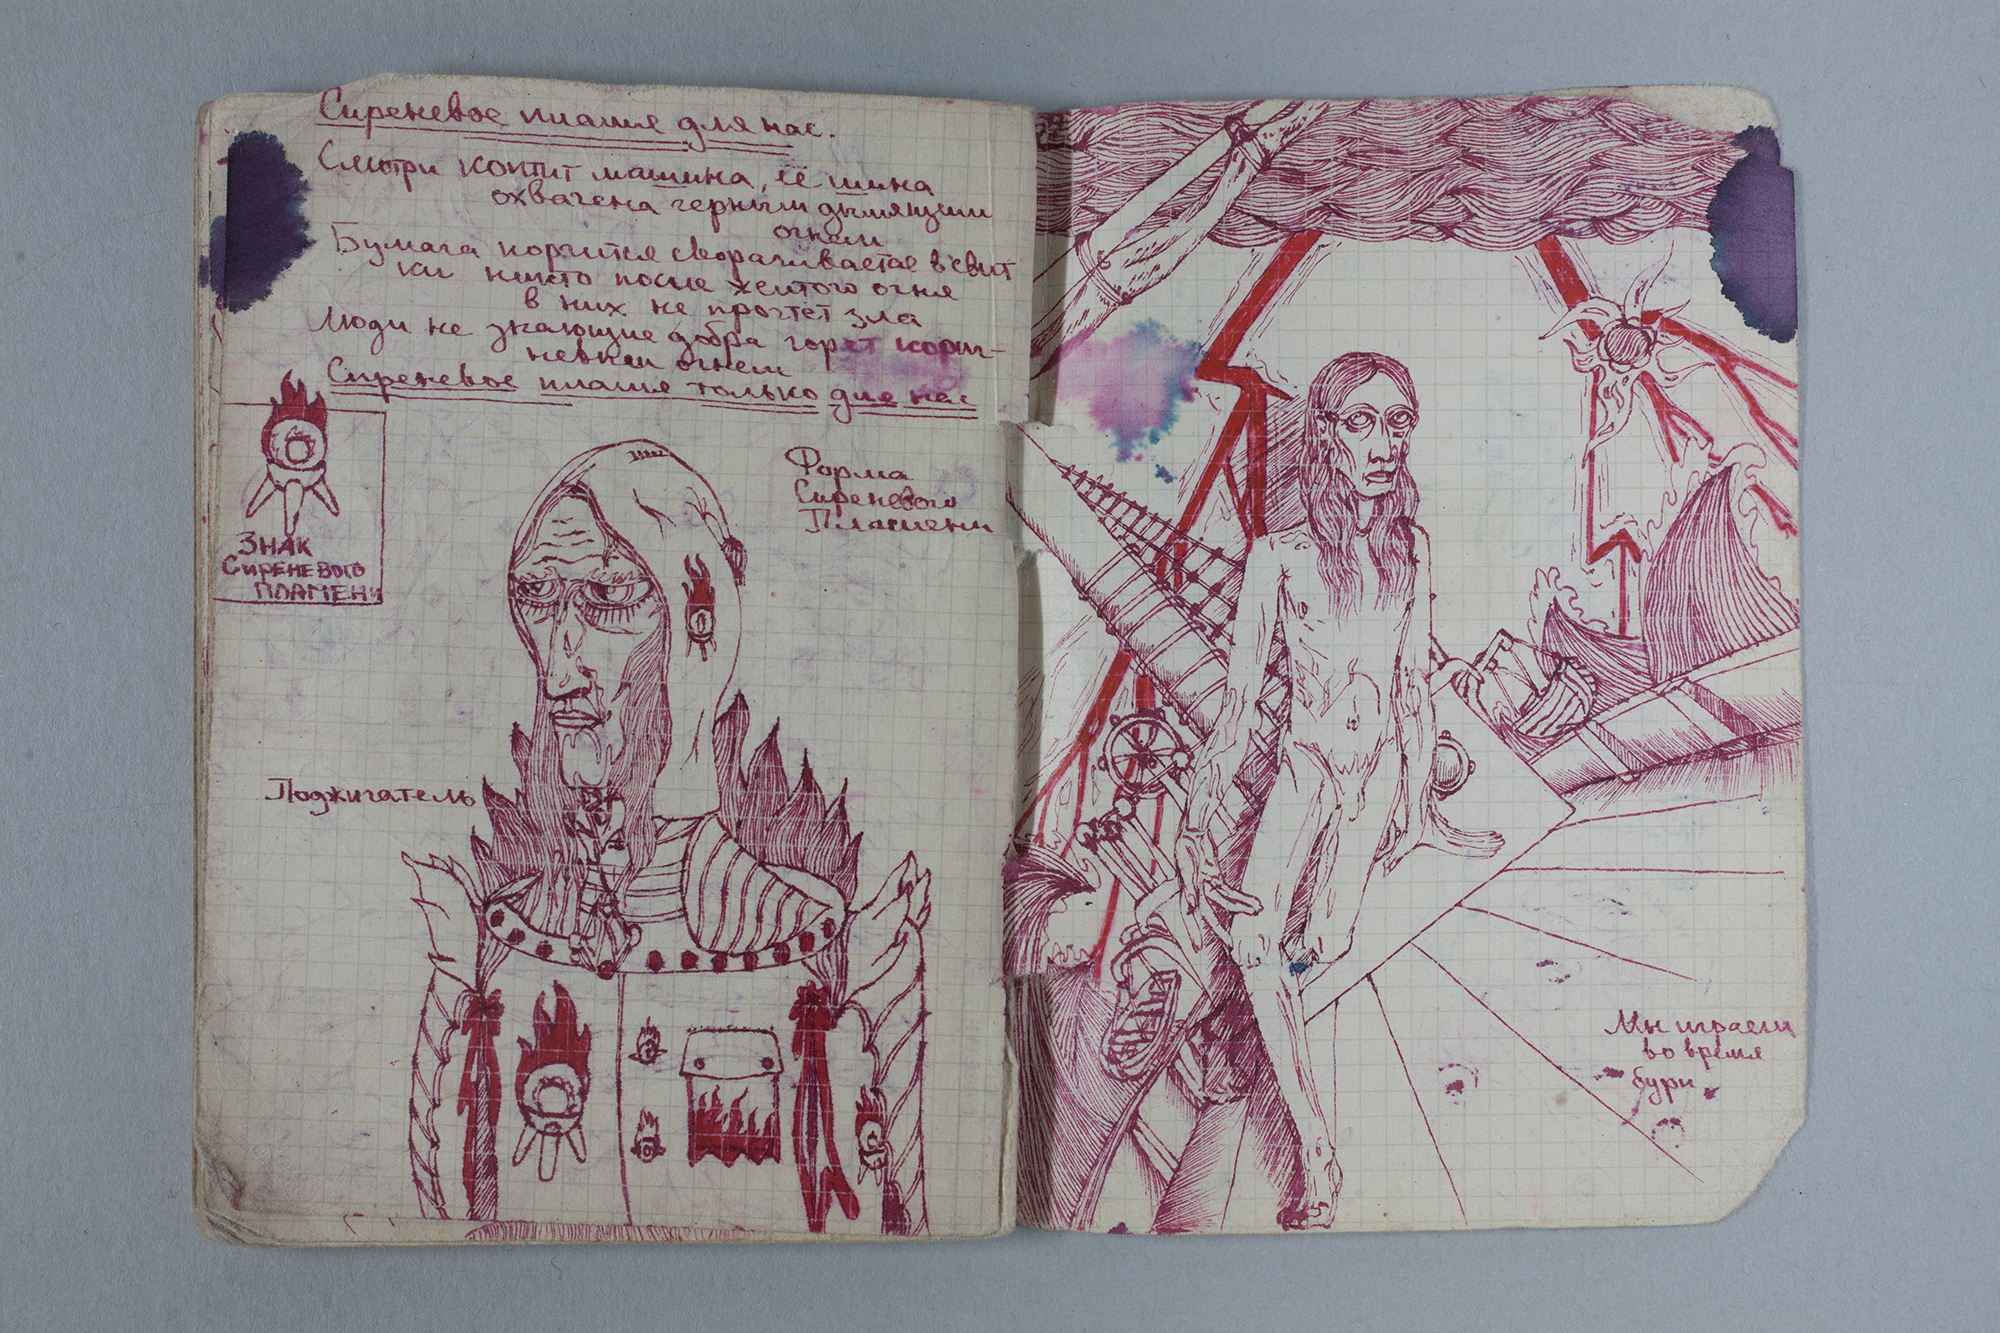 Сиреневое пламя для нас.
Смотри коптит машина, её шина
охвачена черным дымящим
огнем
Бумага портится сворачивается в свит
ки никто после желтого огня
в них не прочтёт зла
Люди не знающие добра горят корич-
невым огнем
Сиреневое пламя только для нас
Знак
Сиреневого
пламени
Форма
Сиреневого
Пламени
Поджигатель
Мы играем
во время
бури